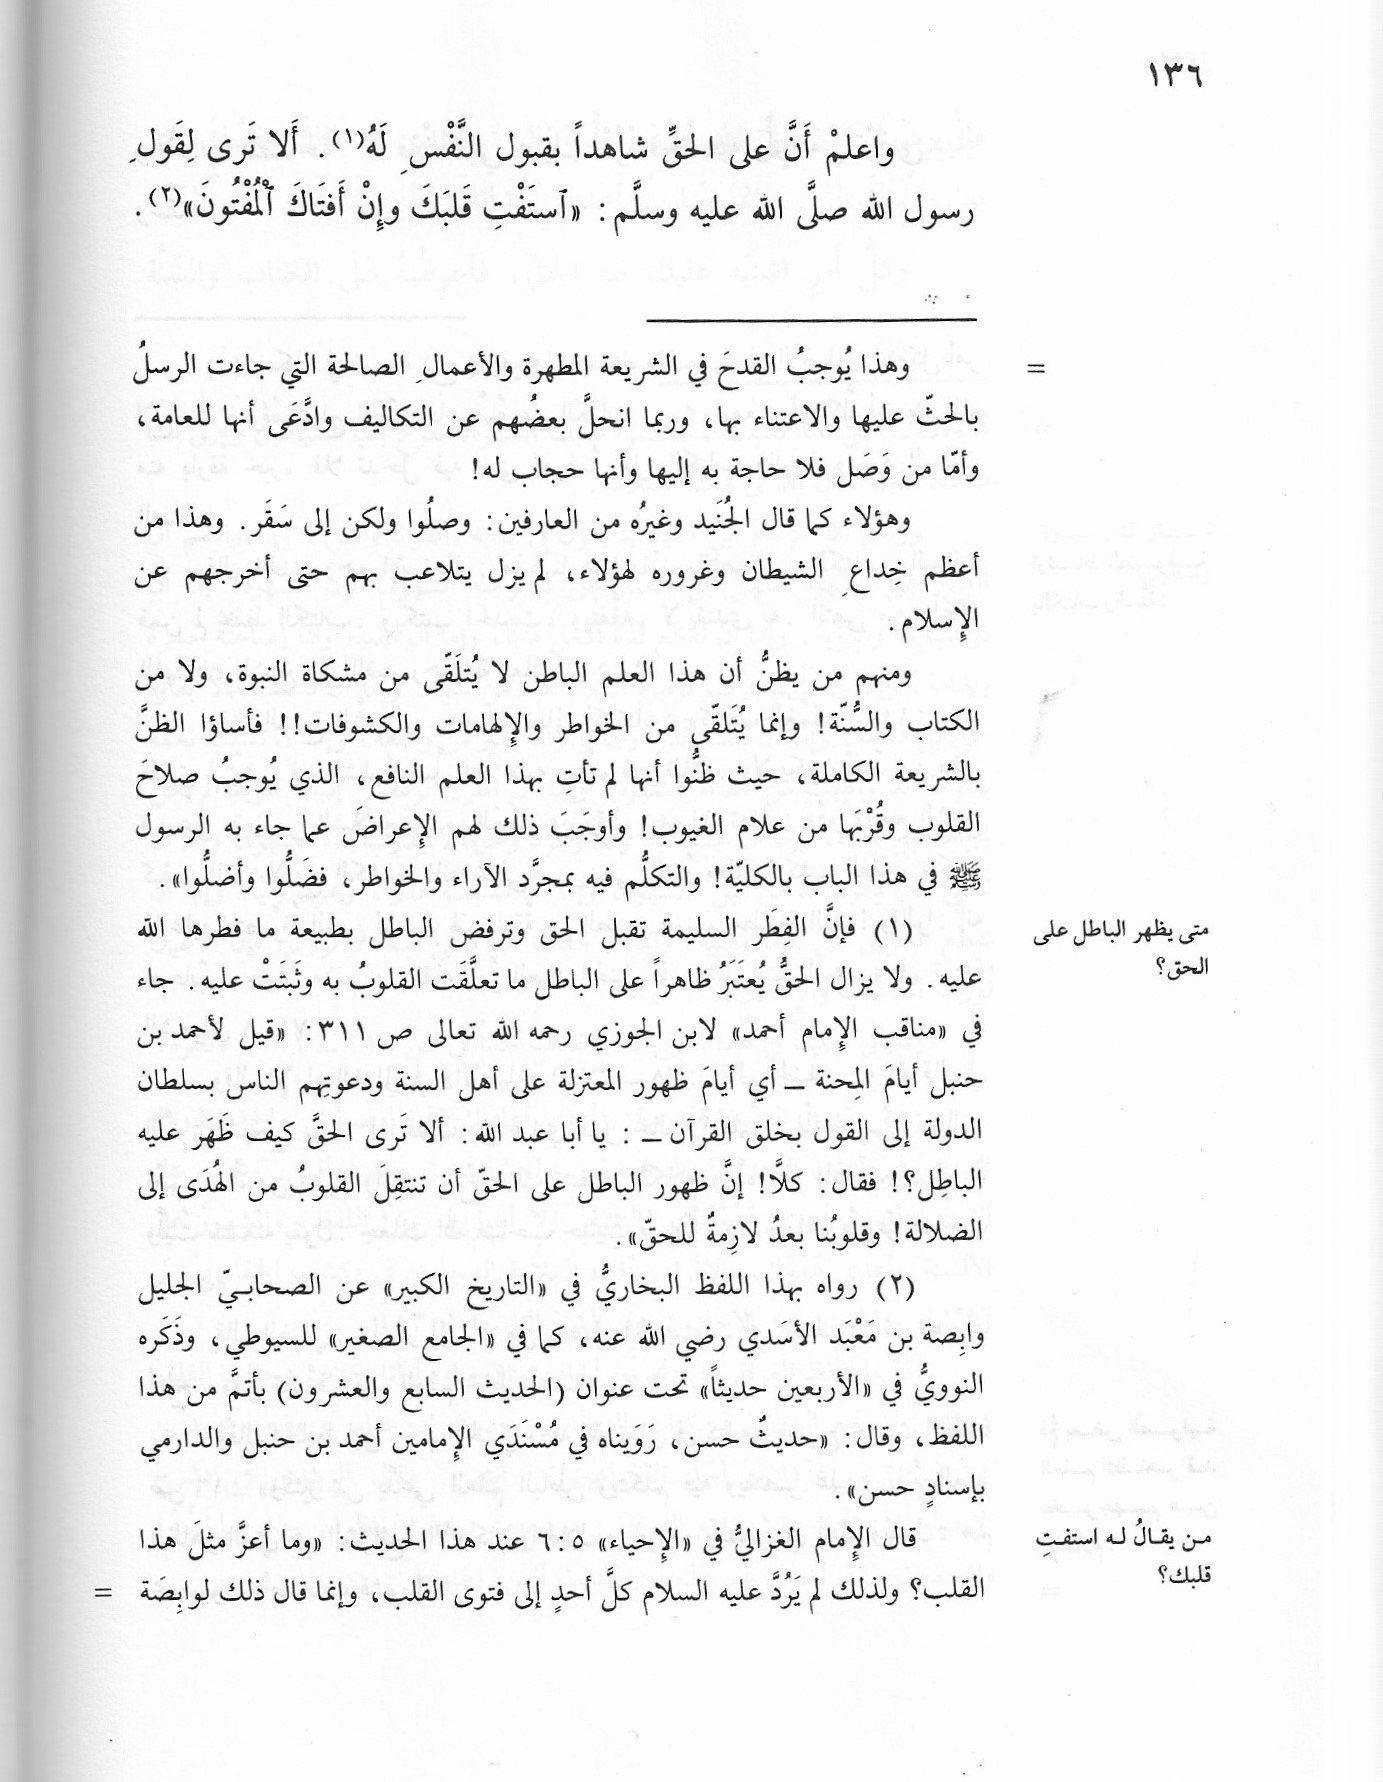 ١٣٦
واعلمْ أَنَّ على الحقِّ شاهداً بقبول النَّفْسِ لَهُ(١). أَلا تَرى لِقَولِ
رسول الله صلَّى الله عليه وسلَّم: «ٱستَفْتِ قَلبَكَ وإِنْ أَفتَاكَ ٱلْمُفْتُونَ»(٢).
= وهذا يُوجبُ القدحَ في الشريعة المطهرة والأعمالِ الصالحة التي جاءت الرسلُ
بالحثّ عليها والاعتناء بها، وربما انحلَّ بعضُهم عن التكاليف وادَّعَى أنها للعامة،
وأمّا من وَصَل فلا حاجة به إليها وأنها حجاب له!
وهؤلاء كما قال الجُنَيد وغيرُه من العارفين: وصلُوا ولكن إلى سَقَر. وهذا من
أعظم خِداعِ الشيطان وغروره لهؤلاء، لم يزل يتلاعب بهم حتى أخرجهم عن
الإسلام.
ومنهم من يظنُّ أن هذا العلم الباطن لا يُتلَقّى من مشكاة النبوة، ولا من
الكتاب والسُّنّة! وإنما يُتَلقّى من الخواطر والإلهامات والكشوفات!! فأساؤا الظنَّ
بالشريعة الكاملة، حيث ظنُّوا أنها لم تأتِ بهذا العلم النافع، الذي يُوجبُ صلاحَ
القلوب وقُرْبَها من علام الغيوب! وأوجَبَ ذلك لهم الإعراضَ عما جاء به الرسول
ﷺ في هذا الباب بالكليّة! والتكلُّم فيه بمجرَّد الآراء والخواطر، فضَلُّوا وأضلُّوا».
(١) فإنَّ الفِطَر السليمة تقبل الحق وترفض الباطل بطبيعة ما فطرها الله
متى يظهر الباطل على
عليه. ولا يزال الحقُّ يُعتَبَرُ ظاهراً على الباطل ما تعلَّقَت القلوبُ به وثَبَتَتْ عليه. جاء
الحق؟
في «مناقب الإمام أحمد» لابن الجوزي رحمه الله تعالى ص ٣١١: «قيل لأحمد بن
حنبل أيامَ المِحنة ــ أي أيامَ ظهور المعتزلة على أهل السنة ودعوتِهم الناس بسلطان
الدولة إلى القول بخلق القرآن ــ : يا أبا عبد الله: ألا تَرى الحقَّ كيف ظَهَر عليه
الباطِل؟! فقال: كلَّا! إنَّ ظهور الباطل على الحقّ أن تنتقِلَ القلوبُ من الهُدَى إلى
الضلالة! وقلوبُنا بعدُ لازِمةٌ للحقّ».
(٢) رواه بهذا اللفظ البخاريُّ في «التاريخ الكبير» عن الصحابيّ الجليل
وابِصة بن مَعْبَد الأسَدي رضي الله عنه، كما في «الجامع الصغير» للسيوطي، وذَكَره
النوويُّ في «الأربعين حديثاً» تحت عنوان (الحديث السابع والعشرون) بأتمَّ من هذا
اللفظ، وقال: «حديثٌ حسن، رَوَيناه في مُسْنَدَي الإمامين أحمد بن حنبل والدارمي
بإسنادٍ حسن».
قال الإمام الغزاليُّ في «الإحياء» ٦:٥ عند هذا الحديث: «وما أعزَّ مثلَ هذا
من يقالُ له استفتِ
القلب؟ ولذلك لم يَرُدَّ عليه السلام كلَّ أحدٍ إلى فتوى القلب، وإنما قال ذلك لوابِصَة =
قلبك؟